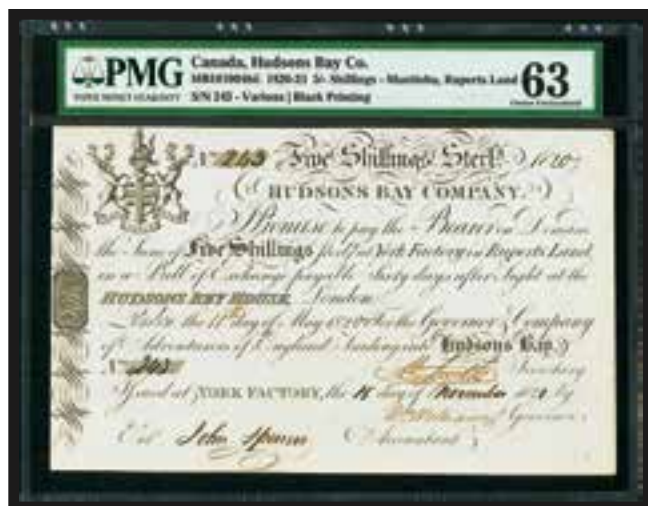 PMG
Canada, Hudsons Bay Co.
1820-21 5s Shillings - Manitoba, Ruperts Land
S/N 243 - Various | Black Printing
63
Choice Uncirculated
No 243 Five Shillings Sterlg. 1820
HUDSONS BAY COMPANY.
I Promise to pay the Bearer on Demand
the Sum of Five Shillings Sterlg. at York Factory in Ruperts Land
in a Bill of Exchange payable Sixty days after Sight at the
HUDSONS BAY HOUSE, London.
London the 11th day of May 1820 for the Governor & Company
of Adventurers of England trading into Hudsons Bay.
No 243
Secretary
Issued at YORK FACTORY, the 18 day of November 1821 by
Governor.
Ent. John Spencer Accountant